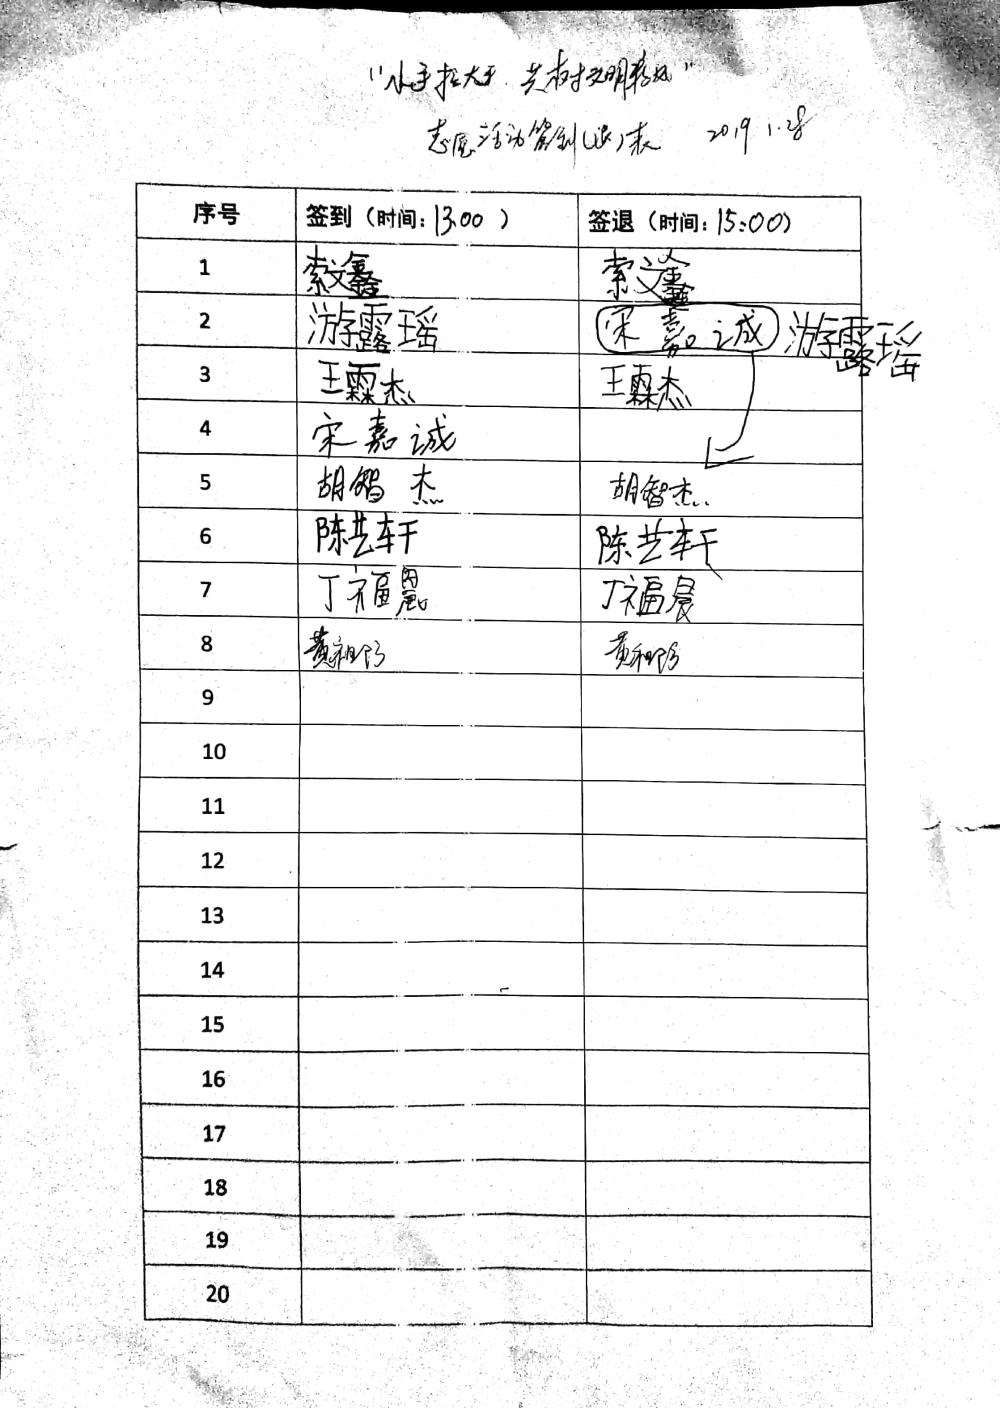 “小手拉大手.共树文明新风”
志愿活动签到(退)表 2019.1.28
序号 签到（时间：13:00 ） 签退（时间：15:00）
1 索文鑫 索文鑫
2 游露瑶 宋嘉诚 游露瑶
3 王霖杰 王霖杰
4 宋嘉诚
5 胡智杰 胡智杰
6 陈艺轩 陈艺轩
7 丁福晨 丁福晨
8
9
10
11
12
13
14
15
16
17
18
19
20